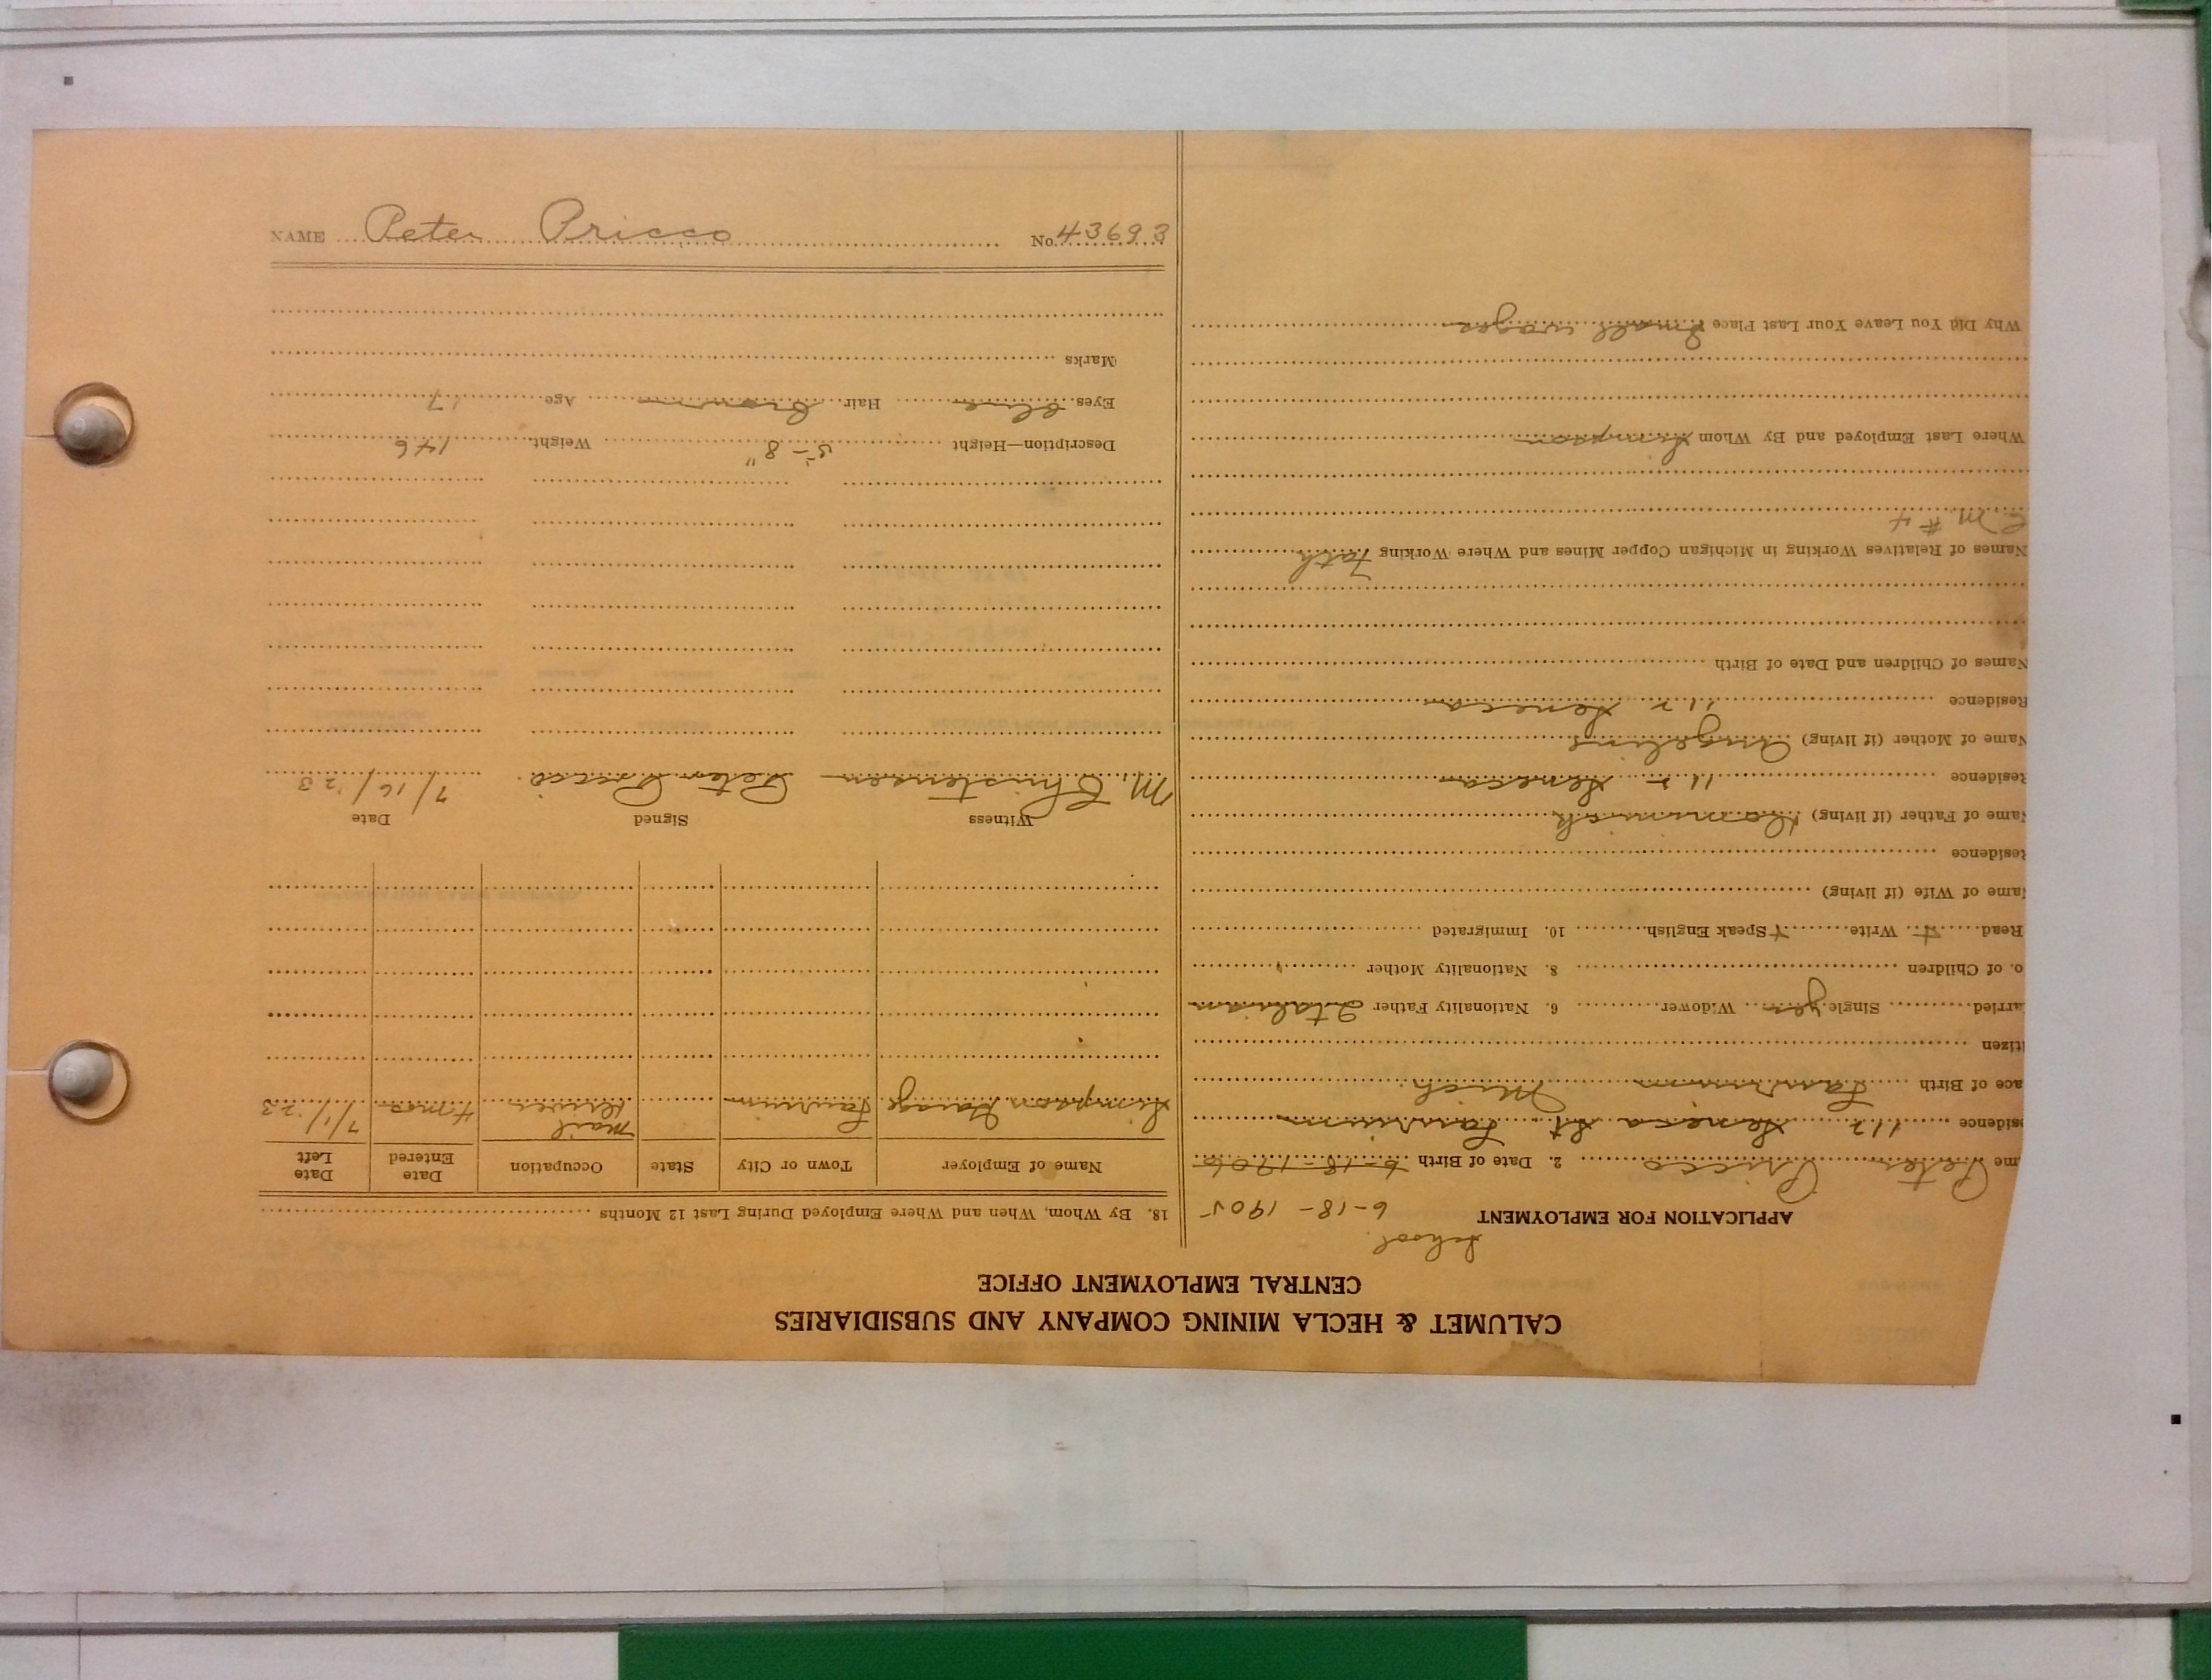 NAME Peter Pricco No. 43693
CALUMET & HECLA MINING COMPANY AND SUBSIDIARIES
CENTRAL EMPLOYMENT OFFICE
School
APPLICATION FOR EMPLOYMENT 6-18-1905
me Peter Pricco 2. Date of Birth 6-18-1906
sidence 112 Seneca St Laurium
ace of Birth Laurium Mich.
itizen
arried Single yes Widower 6. Nationality Father Italian
o. of Children 8. Nationality Mother
Read + Write + Speak English 10. Immigrated
ame of Wife (if living)
Residence
Name of Father (if living)
Residence 112 Seneca
Name of Mother (if living) Angeline
Residence 112 Seneca
Names of Children and Date of Birth
Names of Relatives Working in Michigan Copper Mines and Where Working Fath
C M #4
Where Last Employed and By Whom Simpson
Why Did You Leave Your Last Place Small wages
18. By Whom, When and Where Employed During Last 12 Months
Name of Employer Town or City State Occupation Date Entered Date Left
Simpson Garage Laurium Mail Driver 4 mos 7/1/23
Witness Signed Date
M. Christensen Peter Pricco 7/16/23
Description—Height 5'-8" Weight 146
Eyes blue Hair brown Age 17
Marks